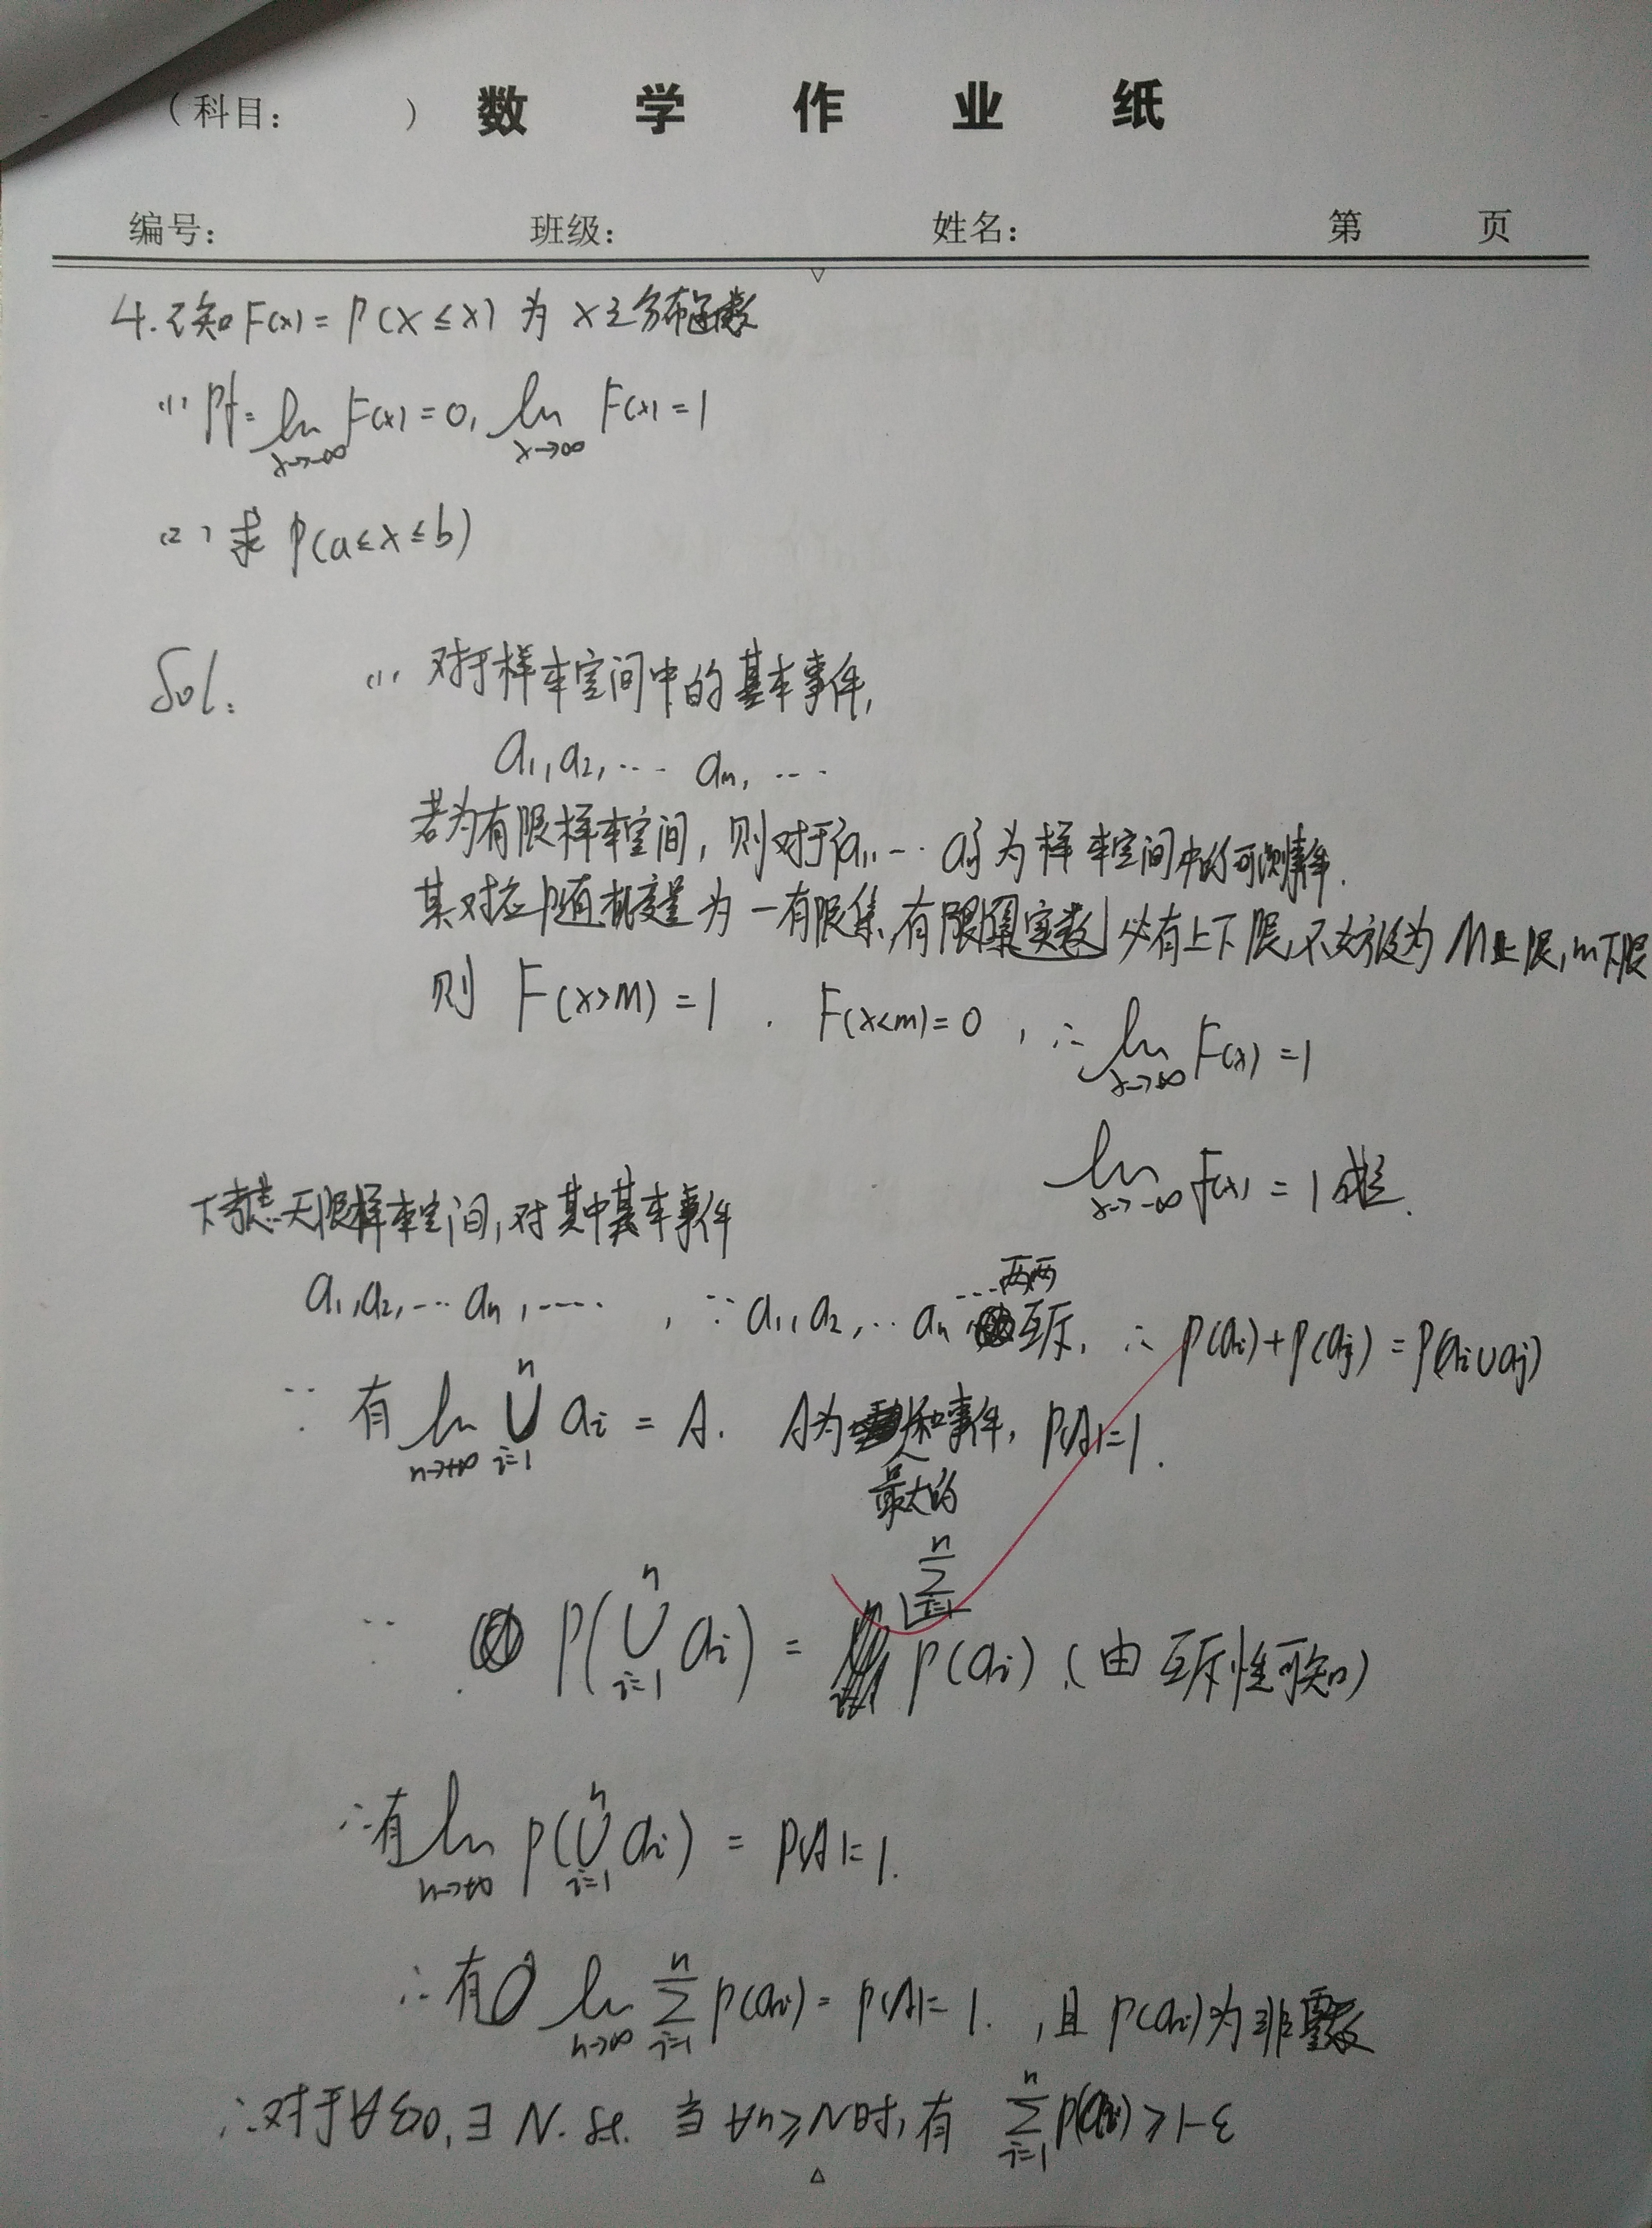 （科目：　　　） 数 学 作 业 纸
编号： 班级： 姓名： 第 页
4. 已知 F(x) = P(X ≤ x) 为 X 之分布函数
(1) Pf: lim_{x→-∞} F(x) = 0, lim_{x→∞} F(x) = 1
(2) 求 P(a ≤ x ≤ b)
Sol: (1) 对于样本空间中的基本事件,
a₁, a₂, … aₙ, …
若为有限样本空间, 则对于{a₁, … aₙ}为样本空间中的可测事件.
其对应随机变量为一有限集, 有限实数 必有上下限, 不妨设为 M上限, m下限
则 F(x>M) = 1 . F(x<m) = 0 , ∴ lim_{x→∞} F(x) = 1
lim_{x→-∞} F(x) = 1 成立.
下考虑无限样本空间, 对其中基本事件
a₁, a₂, … aₙ, …… , ∵ a₁, a₂, … aₙ … 两两互斥, ∴ P(aᵢ) + P(aⱼ) = P(aᵢ∪aⱼ)
∵ 有 lim_{n→+∞} ⋃_{i=1}^{n} aᵢ = A. A为最大的和事件, P(A)=1.
∵ P(⋃_{i=1}^{n} aᵢ) = ∑_{i=1}^{n} P(aᵢ) (由互斥性可知)
∴有 lim_{n→+∞} P(⋃_{i=1}^{n} aᵢ) = P(A)=1.
∴有 lim_{n→∞} ∑_{i=1}^{n} P(aᵢ) = P(A)= 1. , 且 P(aᵢ)为非
∴对于∀ε>0, ∃ N. st. 当 ∀n≥N时, 有 ∑_{i=1}^{n} P(aᵢ) ≥ 1-ε